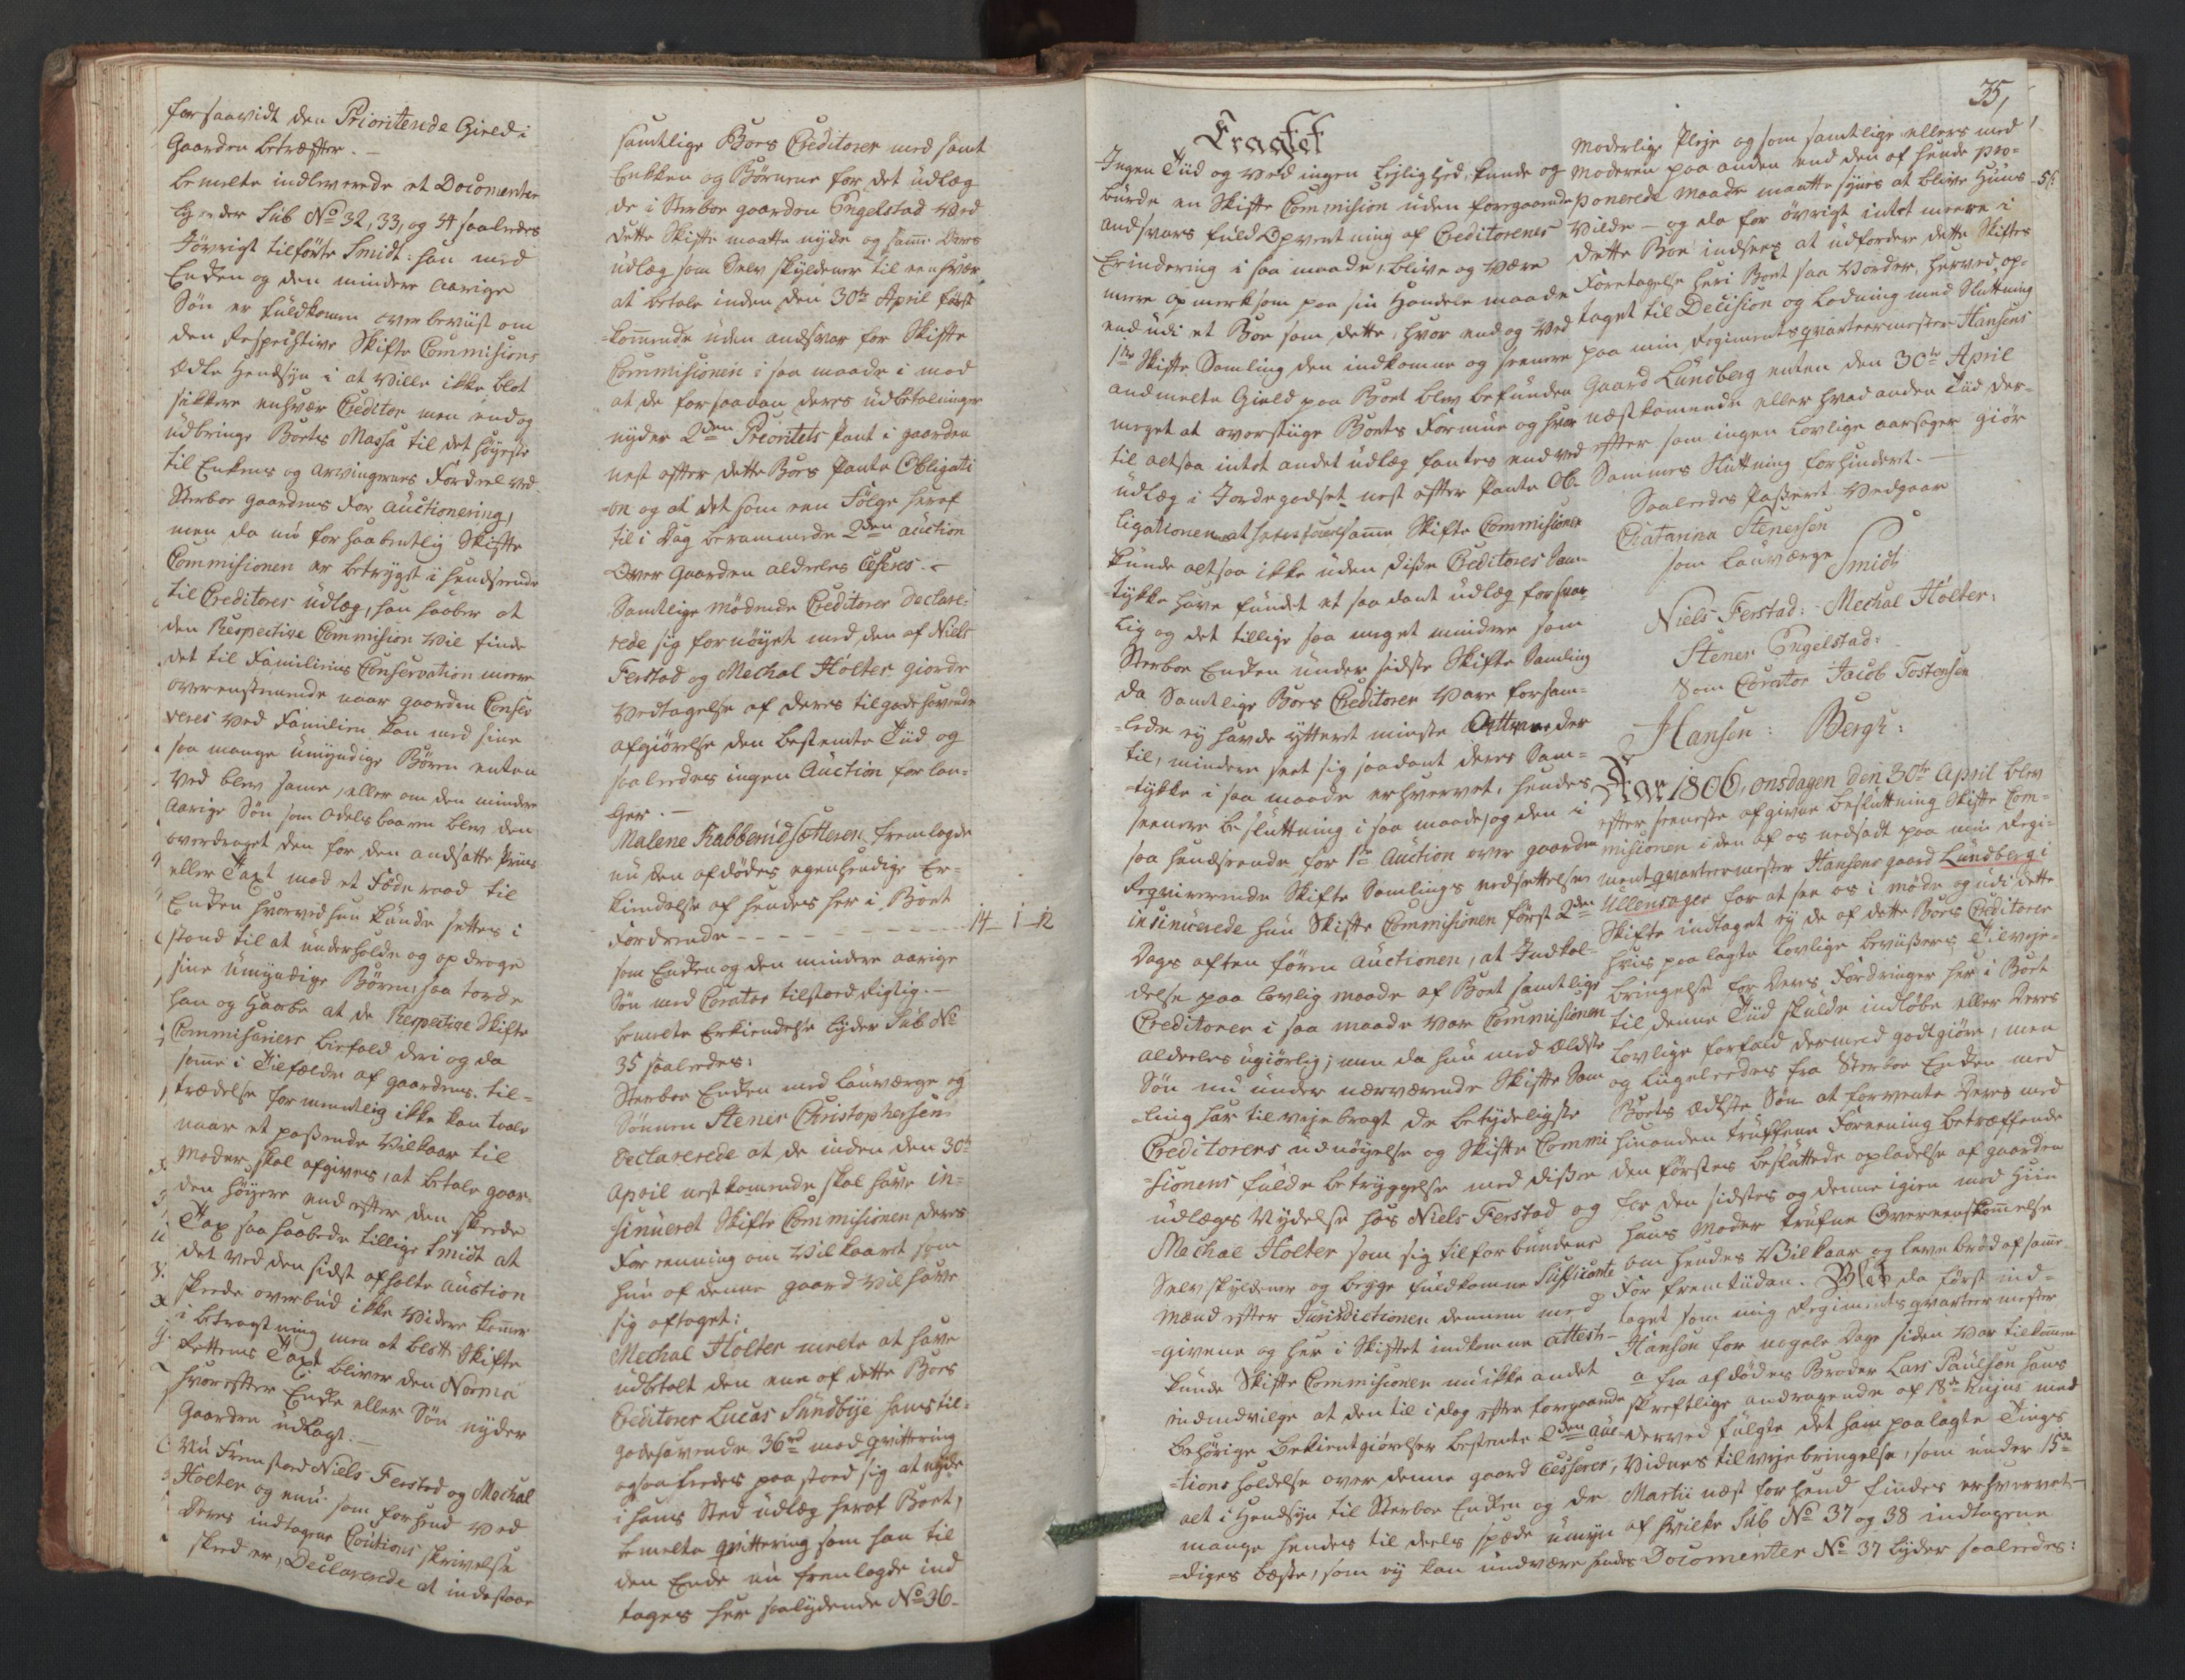 forsaavidt den Prioriterede Gield i
Gaarden betræffer. —
bemelte indleverede et Documenter
lyender Sub No 32, 33, og 34 saaledes
Iøvrigt tilførte Smidt: han med
Enken og den mindre aarige
Søn er fuldkommen overbeviist om
den Respechtive Skifte Commisions
ædle Hensyn i at ville ikke blot
sikkere enhver Creditor men endog
udbringe Boets Massa til det høyeste
til Enkens og arvingernes Fordeel ved
Sterboe gaardens For auctionering,
men da nu forhaabentlig Skifte
Commisionen er betrygt i henseende
til Creditores udlæg, han haaber at
den Respective Commision vil finde
det til Familiens Conservation meere
overensstemmende naar gaarden Conser
veres ved Familien, kan med sine
saa mange umyndige Børn enten
ved blev samme, eller om den mindre
aarige Søn som Odels baaren blev den
overdraget den for den ansatte Priis
eller Taxt mod et Føderaad til
Enken hvorved hun kunde settes i
stand til at underholde og opdrage
sine umyndige Børn, saa torde
han og Haabe at de Respective Skifte
Commisariers biefald deri og da
samme i Tilfælde af gaardens til-
trædelse formeentlig ikke kan taale
naar et passende Vilkaar til
Moder skal afgives, at betale gaar-
den høyere end efter den skeede
Tax saa haabede tillige Smidt at
det ved den sidst afholte auction
skeede overbud ikke videre kommer
i betragtning men at blott Skifte
Rettens Taxt bliver den Norma
hvorefter Enke eller Søn nyder
Gaarden udlagt. —
Nu Fremstoed Niels Ferstad og Mechal
Holter og nu som forhend ved
deres indtagene Coutions skrivelse
skeed er, Declarerede at indestaae
samtlige Boes Creditorer med samt
Enken og Børnene for det udlæg
de i Sterboe gaarden Engelstad ved
dette Skifte maatte nyde og samme deres
udlæg som Selv skyldener til eenhver
at betale inden den 30te April først
-kommende uden andsvar for Skifte
Commisionen i saa maade i mod
at de forsaadan deres udbetalninger
nyder 2den Preoritets Pant i gaarden
nest efter dette Boes Pante Obligati
-on og at det som een Følge heraf
til i Dag berammede 2den auction
Over Gaarden aldeeles Ceserer. —
Samtlige mødende Creditorer declare-
rede sig fornøyet med den af Niels
Ferstad og Mechal Holter giorde
Vedtagelse af deres tilgodehavende
afgiørelse den bestemte Tiid og
saaledes ingen Auction forlan-
ger. —
Malene Rabberudsætteren fremlagde
nu den afdødes egenhendige Er-
kiendelse af hendes her i Boet
Fordrende - - - - - - - - - 14 — 1 — 12
som Enken og den mindre aarige
Søn med Corator tilstoed rigtig. —
bemelte Erkiendelse lyder Sub No
35 saaledes:
Sterboe Enken med Lauværge og
Sønnen Stener Christophersen
declarerede at de inden den 30te
April nestkommende skal have in-
sinueret Skifte Commisionen deres
Forrenning om Vilkaaret som
hun af denne gaard vil have
sig aftaget:
Mechal Holter meelte at have
udbetalt den eene af dette Boes
Creditorer Lucas Sundbye hans til-
godehavende 36rd mod qvittering
og saaledes paastoed sig at nyde
i hans Sted udlæg heraf Boet,
bemelte qvittering som han til
den Ende nu fremlagde ind
tages her saalydende No 36.
35,
Eragtet
Ingen Tiid og ved ingen Leylighed, kunde og
burde en Skifte Commision uden foregaaende
andsvars fuld Opventning af Creditorenes
Erindering i saa maade, blive og være
meere opmerksom paa sin Handele maade
end udi et Boe som dette, hvor endog ved
1te Skifte Samling den indkomne og seenere
andmelte Gield paa Boet blev befunden
meget at overstiige Boets Formue og hvor
til altsaa intet andet udlæg fantes end ved
udlæg i Jordegodset nest efter Pante Ob-
ligationen samme Skifte Commisionen
kunde altsaa ikke uden disse Creditores Sam-
tykke have fundet et saadant udlæg forsvar-
lig og det tillige saa meget mindre som
Sterboe Enken under sidste Skifte Samling
da Samtlige Boes Creditorer vare forsam-
-lede ey havde yttret mindste der
til, mindre seet sig saadant deres Sam-
-tykke i saa maade erhvervet, hendes
seenere besluttning i saa maade, og den i
saa henseende for 1te Auction over gaarden
Reqvirerende Skifte Samlings nedsettelse
insinuerede hun Skifte Commisionen først 2de
Dages aften føren auctionen, at Indkal-
delse paa lovlig maade af Boet samtlige
Creditorer i saa maade var Commisionen
aldeeles ugiørlig; men da hun med ældste
Søn nu under nærværende Skifte Sam
-ling har tilvejebragt de betydeligste
Creditorers udnøyelse og Skifte Commi
-sionens fulde betryggelse med disse
udlægs Nydelse hos Niels Ferstad og
Mechal Holter som sig tilforbundne
Selvskyldener og begge fuldkomne Sufficante
mænd efter Jurisdictionen dennem med
-givene og her i Skiftet indkomne attest-
kunde Skifte Commisionen nu ikke andet
end indvilge at den til i dag efter foregaaende
behørige bekientgiørelser bestemte 2den auc-
-tions holdelse over denne gaard Cesserer,
alt i Hensyn til Sterboe Enken og de
mange hendes til deels spæde umyn
-diges bæste, som ey kan undvære hendes
Moderlige Pleje og som samtlige ellers med
Moderen paa anden end den af hende pro-
ponerede Maade maatte synes at blive Huus
vilde — og da for øvrigt intet meere i
dette Boe indsees at udfordere dette Skiftes
Foretagelse heri Boet saa vorder, herved op-
taget til Decision og Lodning med Sluttning
paa min Regimentsqvarteermester Hansens
Gaard Lundberg enten den 30te April
nestkommende eller hvad anden Tiid der-
efter som ingen lovlige aarsager giør
Sammes Sluttning forhindret. —
Saaledes Passeret Vedgaar
Chatarina Stenersen
som Lauværge Smidt
Niels Ferstad: Mechal Holter:
Stener Engelstad:
Som Corator Jacob Tostensen
Hansen: Bergh:
Aar 1806, onsdagen den 30te April blev
efter seeneste afgivne besluttning Skifte Com-
misionen i den af os nedsadt paa min Regi-
mentqvarteermester Hansens gaard Lundberg i
Ullensager for at see os i møde og udi dette
Skifte indtaget ey de af dette Boes Creditorer
hvis paalagte lovlige beviissers Tilveje-
bringelse for deres Fordringer her i Boet
til denne Tiid skulde indløbe eller deres
lovlige forfald dermed godtgiøre, men
og liigeledes fra Sterboe Enken med
Boets Ældste Søn at forvente deres med
hinanden truffene Foreening betræffende
den førstes besluttede opladelse af gaarden
for den sidstes og denne igien med Hiin
hans Moder trufne Overeenskommelse
om hendes Vilkaar og levebrød af samme
For fremtiiden. Blev da først ind-
taget som mig Regimentsqvarteermester
Hansen for nogele Dage siden var tilkommen
a fra afdødes Broder Lars Paulsen hans
skreftlige andragende af 18de hujus med
derved fulgte det ham paalagte Tings
Vidnes tilvejebringelse, som under 15de
Martii nest forhend findes erhvervet —
af hvilke Sub No 37 og 38 indtagene
Documenter No 37 lyder saaledes: